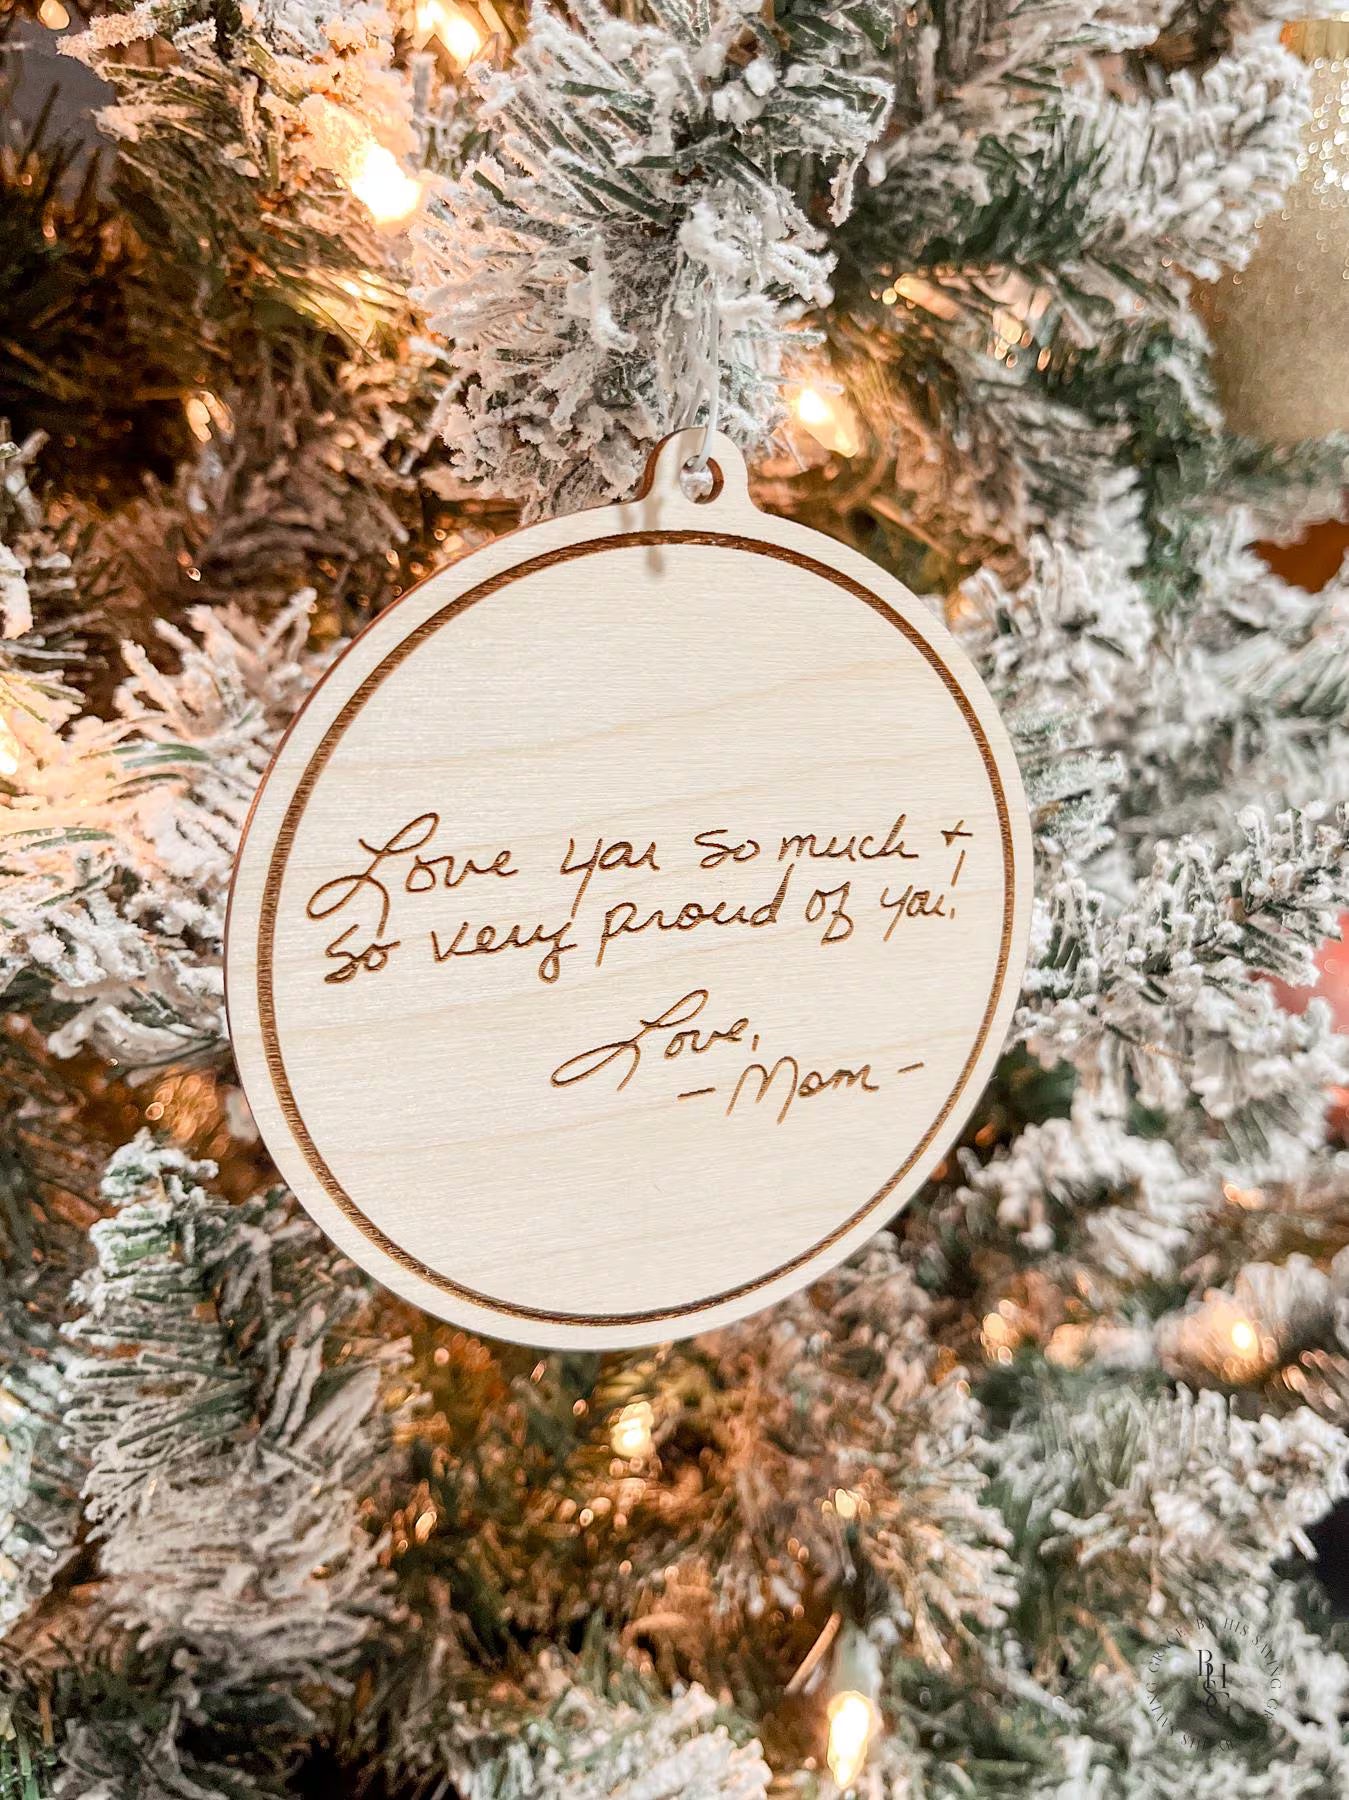 Love you so much +
so very proud of you!
Love,
- Mom -
BY HIS SAVING GRACE
BHSG